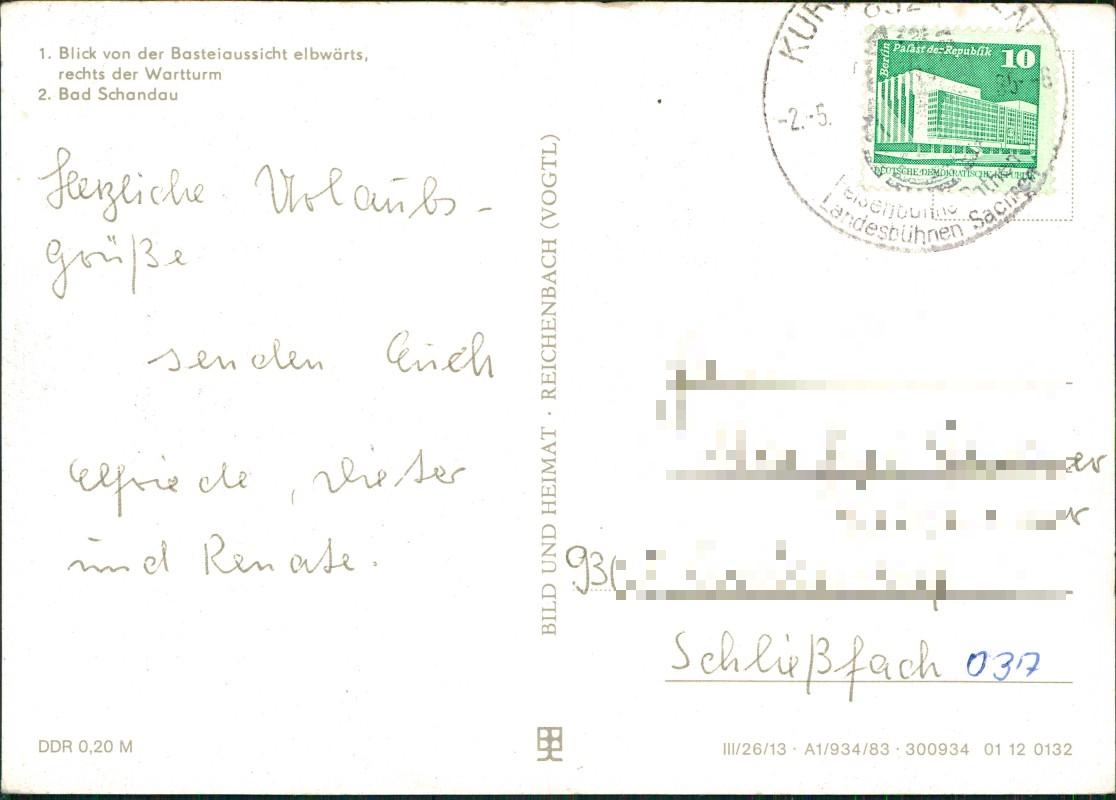 1. Blick von der Basteiaussicht elbwärts,
rechts der Wartturm
2. Bad Schandau
Herzliche Urlaubs-
grüße
senden Euch
Elfriede, Dieter
und Renate.
BILD UND HEIMAT · REICHENBACH (VOGTL)
Berlin Palast der Republik 10
DEUTSCHE DEMOKRATISCHE REPUBLIK
-2.-5.
Landesbühnen Sachsen
Schließfach 037
DDR 0,20 M
III/26/13 · A1/934/83 · 300934 01 12 0132